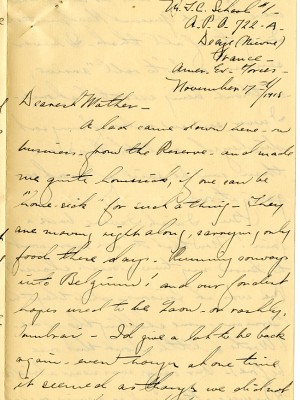 M.T.C. School #1-
A.P.O. 722-A-
Decize (Nievre)
France-
Amer. Ex. Forces-
November 17th/1918
Dearest Mother-
A lad came down here- on
business- from the Reserve- and made
me quite homesick, if one can be
"home-sick" for such a thing- They
are moving right along, carrying only
food these days- Running convoys
into Belgium! and our fondest
hopes used to be Laon- or
Cambrai- I'd give a lot to be back
again- even though at one time
it seemed as though we did not